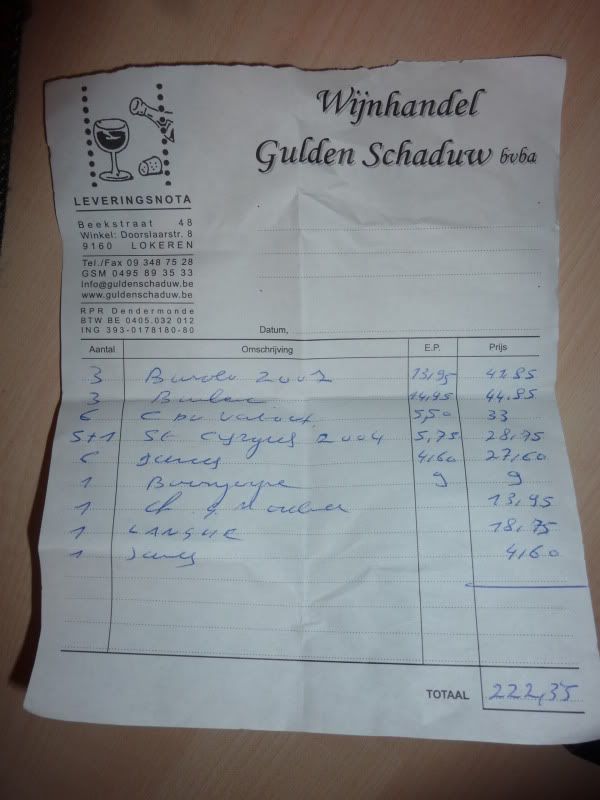 Wijnhandel
Gulden Schaduw bvba
LEVERINGSNOTA
Beekstraat 48
Winkel: Doorslaarstr. 8
9160 LOKEREN
Tel./Fax 09 348 75 28
GSM 0495 89 35 33
Info@guldenschaduw.be
www.guldenschaduw.be
RPR Dendermonde
BTW BE 0405.032 012
ING 393-0178180-80
Datum,
Aantal Omschrijving E.P. Prijs
3 13,95 41.85
3 14,95 44,85
6 5,50 33
5+1 St 2004 5,75 28,75
6 4,60 27,60
1 9 9
1 13,95
1 LANGHE 18,75
1 4,60
TOTAAL 222,35